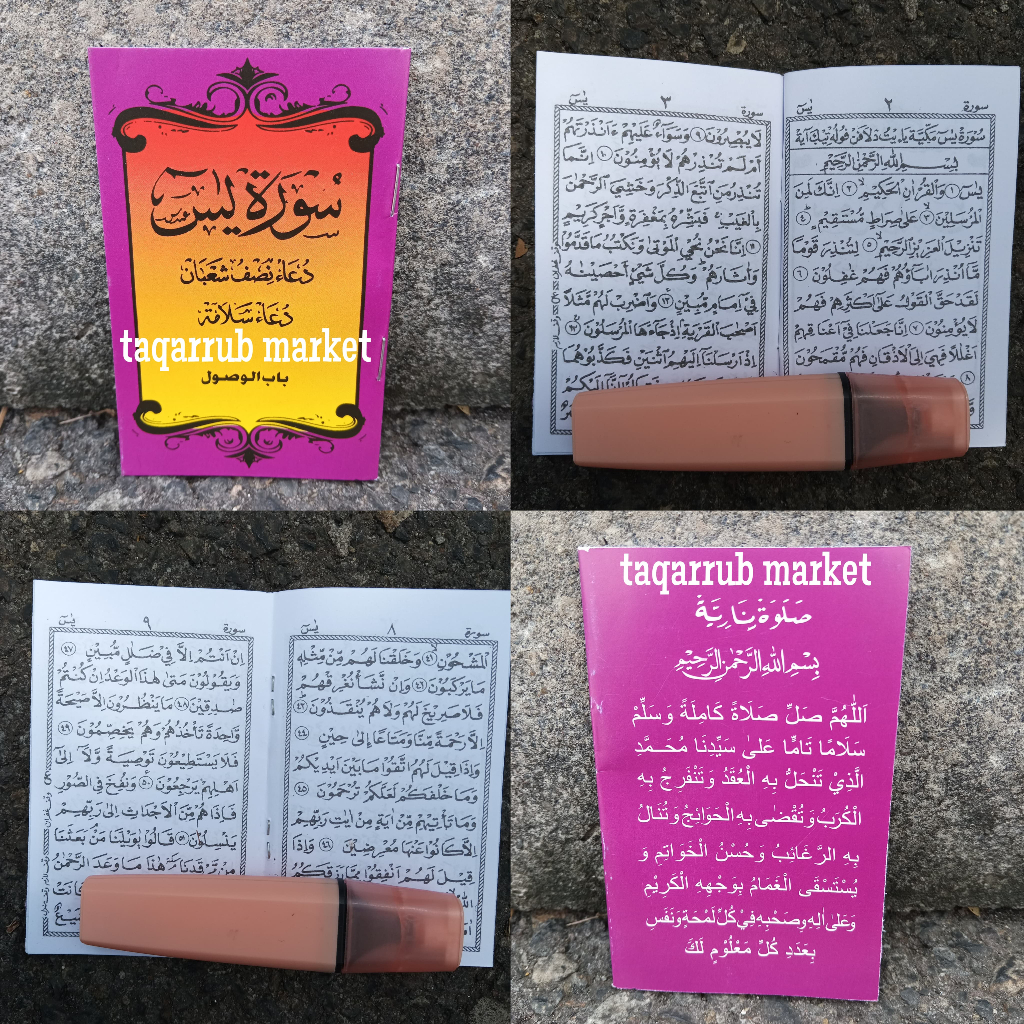 سُوْرَة يٰسٓ
دُعَاءِ نِصْفُ شَعْبَانْ
دُعَاءْ سَلَامَةْ
taqarrub market
باب الوصول
سورة ٢ يٰسٓ
بِسْمِ اللهِ الرَّحْمٰنِ الرَّحِيْمِ
يٰسٓ ۝١ وَالْقُرْاٰنِ الْحَكِيْمِ ۝٢ اِنَّكَ لَمِنَ
الْمُرْسَلِيْنَ ۝٣ عَلٰى صِرَاطٍ مُسْتَقِيْمٍ ۝٤
تَنْزِيْلَ الْعَزِيْزِ الرَّحِيْمِ ۝٥ لِتُنْذِرَ قَوْمًا
مَّآ اُنْذِرَ اٰبَاؤُهُمْ فَهُمْ غٰفِلُوْنَ ۝٦
لَقَدْ حَقَّ الْقَوْلُ عَلٰى اَكْثَرِهِمْ فَهُمْ
لَا يُؤْمِنُوْنَ ۝٧ اِنَّا جَعَلْنَا فِيْٓ اَعْنَاقِهِمْ
اَغْلٰلًا فَهِيَ اِلَى الْاَذْقَانِ فَهُمْ مُقْمَحُوْنَ
۝٨
سورة ٣ يٰسٓ
لَا يُبْصِرُوْنَ ۝٩ وَسَوَآءٌ عَلَيْهِمْ ءَاَنْذَرْتَهُمْ
اَمْ لَمْ تُنْذِرْهُمْ لَا يُؤْمِنُوْنَ ۝١٠ اِنَّمَا
تُنْذِرُ مَنِ اتَّبَعَ الذِّكْرَ وَخَشِيَ الرَّحْمٰنَ
بِالْغَيْبِ فَبَشِّرْهُ بِمَغْفِرَةٍ وَّاَجْرٍ كَرِيْمٍ
۝١١ اِنَّا نَحْنُ نُحْيِ الْمَوْتٰى وَنَكْتُبُ مَا قَدَّمُوْا
وَاٰثَارَهُمْ وَكُلَّ شَيْءٍ اَحْصَيْنٰهُ
فِيْٓ اِمَامٍ مُّبِيْنٍ ۝١٢ وَاضْرِبْ لَهُمْ مَّثَلًا
اَصْحٰبَ الْقَرْيَةِ اِذْ جَآءَهَا الْمُرْسَلُوْنَ ۝١٣
اِذْ اَرْسَلْنَآ اِلَيْهِمُ اثْنَيْنِ فَكَذَّبُوْهُمَا
سورة ٨ يٰسٓ
الْمَشْحُوْنِ ۝٤١ وَخَلَقْنَا لَهُمْ مِّنْ مِّثْلِهٖ
مَا يَرْكَبُوْنَ ۝٤٢ وَاِنْ نَّشَأْ نُغْرِقْهُمْ
فَلَا صَرِيْخَ لَهُمْ وَلَا هُمْ يُنْقَذُوْنَ ۝٤٣
اِلَّا رَحْمَةً مِّنَّا وَمَتَاعًا اِلٰى حِيْنٍ ۝٤٤
وَاِذَا قِيْلَ لَهُمُ اتَّقُوْا مَا بَيْنَ اَيْدِيْكُمْ
وَمَا خَلْفَكُمْ لَعَلَّكُمْ تُرْحَمُوْنَ ۝٤٥
وَمَا تَأْتِيْهِمْ مِّنْ اٰيَةٍ مِّنْ اٰيٰتِ رَبِّهِمْ
اِلَّا كَانُوْا عَنْهَا مُعْرِضِيْنَ ۝٤٦ وَاِذَا
قِيْلَ لَهُمْ اَنْفِقُوْا مِمَّا رَزَقَكُمُ
سورة ٩ يٰسٓ
اِنْ اَنْتُمْ اِلَّا فِيْ ضَلٰلٍ مُّبِيْنٍ ۝٤٧
وَيَقُوْلُوْنَ مَتٰى هٰذَا الْوَعْدُ اِنْ كُنْتُمْ
صٰدِقِيْنَ ۝٤٨ مَا يَنْظُرُوْنَ اِلَّا صَيْحَةً
وَّاحِدَةً تَأْخُذُهُمْ وَهُمْ يَخِصِّمُوْنَ ۝٤٩
فَلَا يَسْتَطِيْعُوْنَ تَوْصِيَةً وَّلَآ اِلٰٓى
اَهْلِهِمْ يَرْجِعُوْنَ ۝٥٠ وَنُفِخَ فِى الصُّوْرِ
فَاِذَا هُمْ مِّنَ الْاَجْدَاثِ اِلٰى رَبِّهِمْ
يَنْسِلُوْنَ ۝٥١ قَالُوْا يٰوَيْلَنَا مَنْۢ بَعَثَنَا
مِنْ مَّرْقَدِنَا هٰذَا مَا وَعَدَ الرَّحْمٰنُ
taqarrub market
صَلَوَةْ نَارِيَّةْ
بِسْمِ اللهِ الرَّحْمٰنِ الرَّحِيْمِ
اَللّٰهُمَّ صَلِّ صَلَاةً كَامِلَةً وَسَلِّمْ
سَلَامًا تَامًّا عَلٰى سَيِّدِنَا مُحَمَّدِ
الَّذِيْ تَنْحَلُّ بِهِ الْعُقَدُ وَتَنْفَرِجُ بِهِ
الْكُرَبُ وَتُقْضٰى بِهِ الْحَوَائِجُ وَتُنَالُ
بِهِ الرَّغَائِبُ وَحُسْنُ الْخَوَاتِمِ وَ
يُسْتَسْقَى الْغَمَامُ بِوَجْهِهِ الْكَرِيْمِ
وَعَلٰى اٰلِهِ وَصَحْبِهِ فِيْ كُلِّ لَمْحَةٍ وَنَفَسٍ
بِعَدَدِ كُلِّ مَعْلُوْمٍ لَكَ